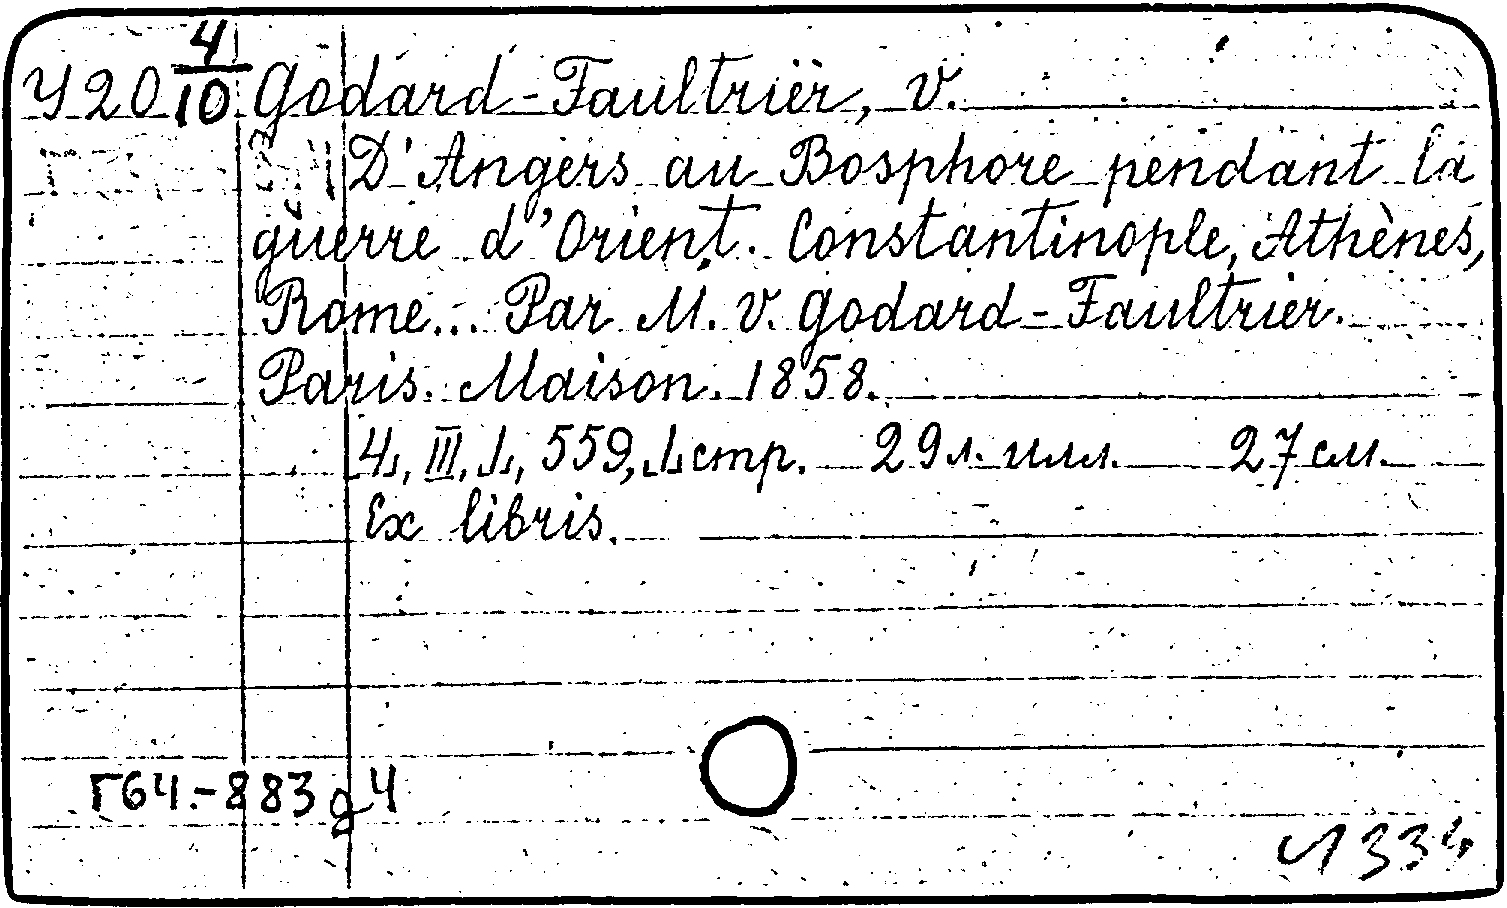 У 20 4/10 Godard-Faultrier, V.
D'Angers au Bosphore pendant la
guerre d'Orient. Constantinople, Athènes,
Rome... Par M. V. Godard-Faultrier.
Paris. Maison. 1858.
4, III, 1, 559, 1 стр. 29 л. илл. 27 см.
Ex libris.
Г64.-883 д 4
И 334